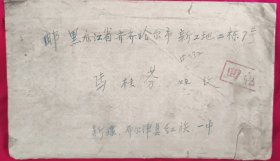 邮 黑龙江省齐齐哈尔市新工地二栋7号
桂芬 收
新疆 布尔津县红旗一中